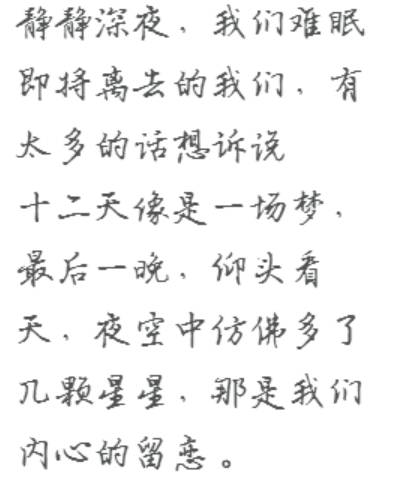 静静深夜，我们难眠
即将离去的我们，有
太多的话想诉说
十二天像是一场梦，
最后一晚，仰头看
天，夜空中仿佛多了
几颗星星，那是我们
内心的留恋。